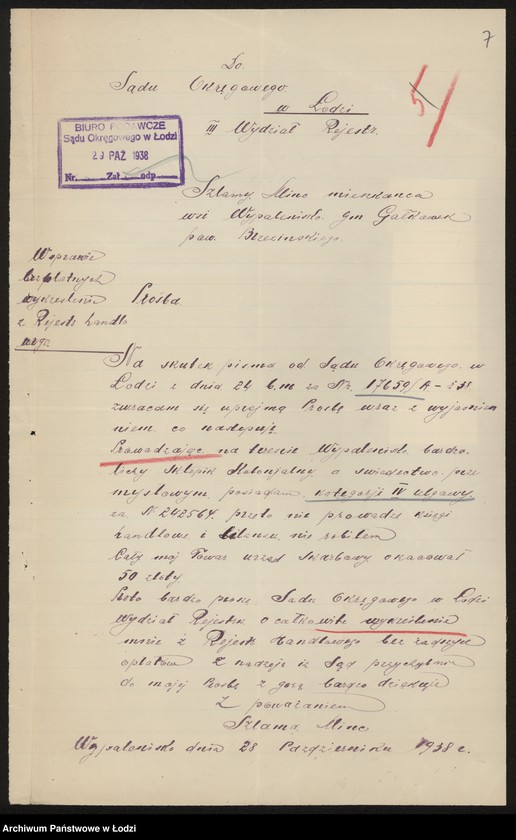 7
Do
Sądu Okręgowego
w Łodzi
III Wydział Rejestr.
5
BIURO PODAWCZE
Sądu Okręgowego w Łodzi
29 PAŹ 1938
Nr. Zał. odp.
Szlamy Minc mieszkańca
wsi Wypalenisko gm Gałkówek
pow. Brzezinskiego.
W sprawie
bezpłatnych
wykreślenia
z Rejestr handlo
wego
Prośba
Na skutek pisma od Sądu Okręgowego w
Łodzi z dnia 24 b.m za Nr. 17659/A-
zwracam się uprzejmą Prośbę wraz z wyjaśnie
niem co następuję
Prowadzając na terenie Wypalenisko bardzo
liczy Sklepik Kolonjalny a swiedectwo prze
mysłowym posiadam kategorji IV ulgowy
za N 242564. przeto nie prowadzę księgi
handlowe i bilansu nie robiłem
Cały mój Towar urząd skarbowy oszacował
50 złoty
Proto bardzo proszę Sądu Okręgowego w Łodzi
Wydział Rejestr o całkowite wykreślenie
mnie z Rejestr Handlowego bez żadnych
opłatów z nadzieje iz Sąd przychylnie
do mojej Prosbę z góry bardzo dziękuję
Z poważaniem
Szlama Minc
Wypalenisko dnia 28 Październiku 1938 r.
Archiwum Państwowe w Łodzi